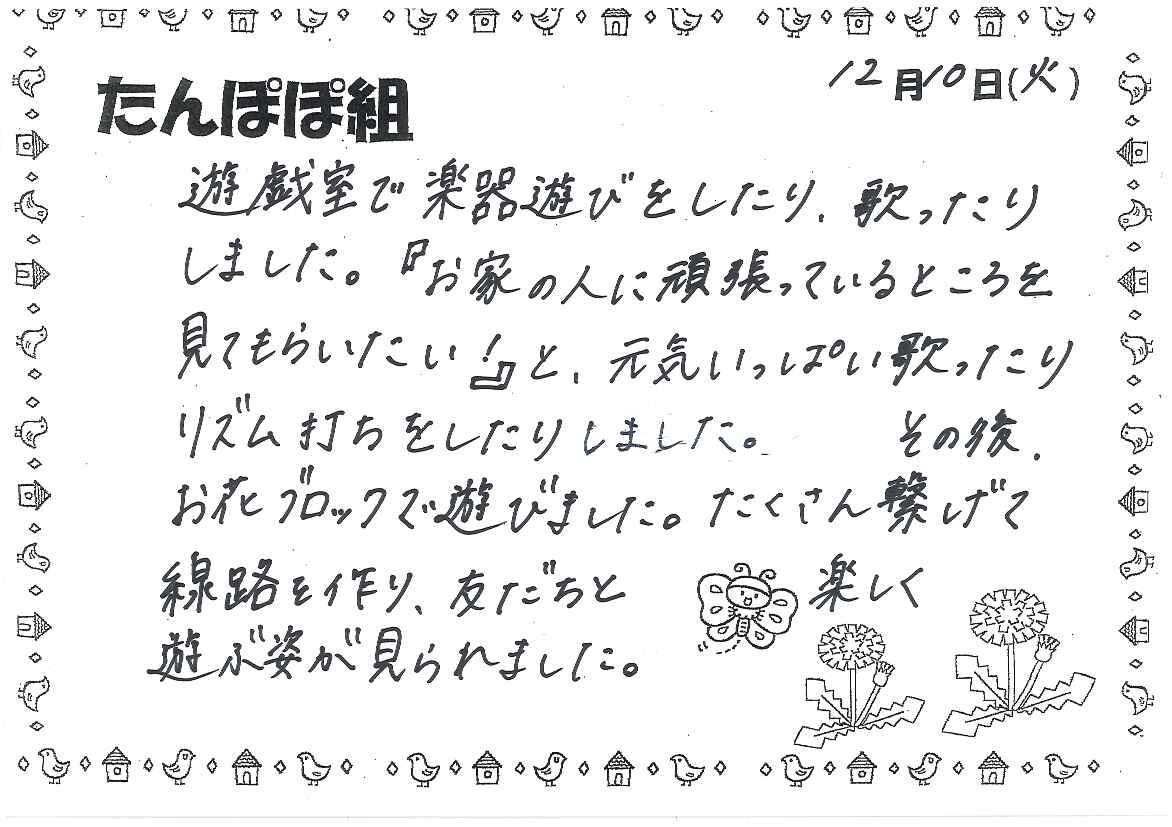 たんぽぽ組
12月10日(火)
遊戯室で楽器遊びをしたり、歌ったり
しました。『お家の人に頑張っているところを
見てもらいたい!』と、元気いっぱい歌ったり
リズム打ちをしたりしました。 その後、
お花ブロックで遊びました。たくさん繋げて
線路を作り、友だちと 楽しく
遊ぶ姿が見られました。